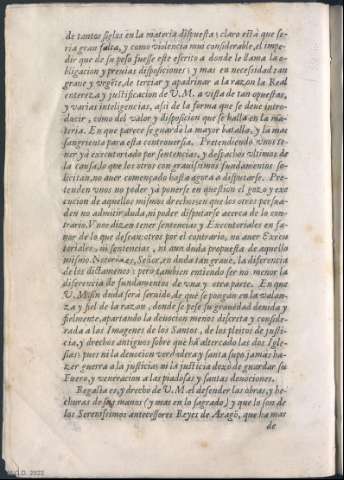 de tantos siglos en la materia dispuesta; claro está que se-
ria gran falta, y como violencia muy considerable, el impe-
dir que de su peso fuesse este escrito a donde le llama la o-
bligacion y preuias disposiciones; y mas en necessidad tan
graue y vrgẽte, de terciar y apadrinar a la razon la Real
entereza y justificacion de V.M. a vista de tan opuestas,
y varias inteligencias, assi de la forma que se deue intro-
ducir, como del valor y disposicion que se halla en la ma-
teria. En que parece se guarda la mayor batalla, y la mas
sangrienta para esta controuersia. Pretendiendo vnos te-
ner ya executoriado por sentencias, y despachos vltimos de
la causa, lo que los otros con grauissimos fundamentos so-
licitan, no auer començado hasta agora a disputarse. Preten-
den vnos no poder ya ponerse en question el gozo y exe
cucion de aquellos mismos derechos en que los otros persua-
den no admitir duda, ni poder disputarse acerca de lo con-
trario. Vnos dizen tener sentencias y Executoriales en fa-
uor de lo que dessean: otros por el contrario, no auer Execu
toriales, ni sentencias, ni aun duda propuesta de aquello
mismo. Notoria es, Señor, en duda tan graue, la diferencia
de los dictamenes: pero tambien entiendo ser no menor la
diferencia de fundamentos de vna y otra parte. En que
V. M. sin duda será seruido, de que se pongan en la valan-
za y fiel de la razon, donde se pese su grauedad deuida y
fielmente, apartando la deuocion menos discreta y conside-
rada a las Imagenes de los Santos, de los pleitos de justi-
cia, y drechos antiguos sobre que hã altercado las dos Igle-
sias: pues ni la deuocion verdadera y santa supo jamas ha-
zer guerra a la justicia; ni la justicia dexò de guardar su
Fuero, y veneracion a las piadosas y santas deuociones.
Regalia es, y drecho de V.M. el defender las obras, y he-
churas de sus manos (y mas en lo sagrado) y que lo son de
los Serenissimos antecessores Reyes de Aragõ, que ha mas
de